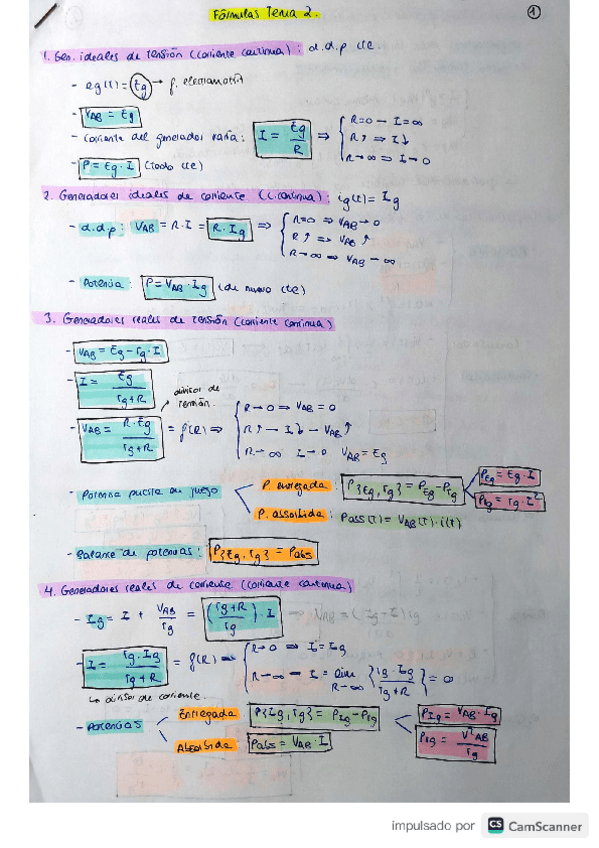 Fórmulas Tema 2.
1
1. Gen. ideales de tensión (corriente continua): d.d.p cte.
- eg(t) = Eg → f. electromotriz
- VAB = Eg
- Corriente del generador varía: I = Eg/R ⇒ { R=0 → I=∞
R↑ ⇒ I↓
R→∞ ⇒ I→0
- P = Eg · I (todo cte)
2. Generadores ideales de corriente (c. continua): ig(t) = Ig
- d.d.p: VAB = R·I = R·Ig ⇒ { R=0 ⇒ VAB→0
R↑ ⇒ VAB↑
R→∞ ⇒ VAB→∞
- Potencia: P = VAB · Ig (de nuevo cte)
3. Generadores reales de tensión (corriente continua)
- VAB = Eg - rg · I
- I = Eg/(rg+R)
divisor de tensión
- VAB = R·Eg/(rg+R) = f(R) ⇒ { R→0 ⇒ VAB = 0
R↑ → I↓ → VAB↑
R→∞ I→0 VAB = Eg
- Potencia puesta en juego
P. entregada: P{Eg, rg} = PEg - Prg
PEg = Eg · I
Prg = rg · I²
P. absorbida: Pabs(t) = VAB(t) · i(t)
- Balance de potencias: P{Eg, rg} = Pabs
4. Generadores reales de corriente (corriente continua)
- Ig = I + VAB/rg = ((rg+R)/rg) · I → VAB = (Ig-I) rg
- I = rg·Ig/(rg+R) = f(R) ⇒ { R→0 ⇒ I=Ig
R→∞ → I = lim R→∞ {rg·Ig/(rg+R)} = 0
↳ divisor de corriente
- Potencias
Entregada P{Ig, rg} = PIg - Prg
PIg = VAB · Ig
Prg = V²AB/rg
Absorbida Pabs = VAB · I
impulsado por CS CamScanner